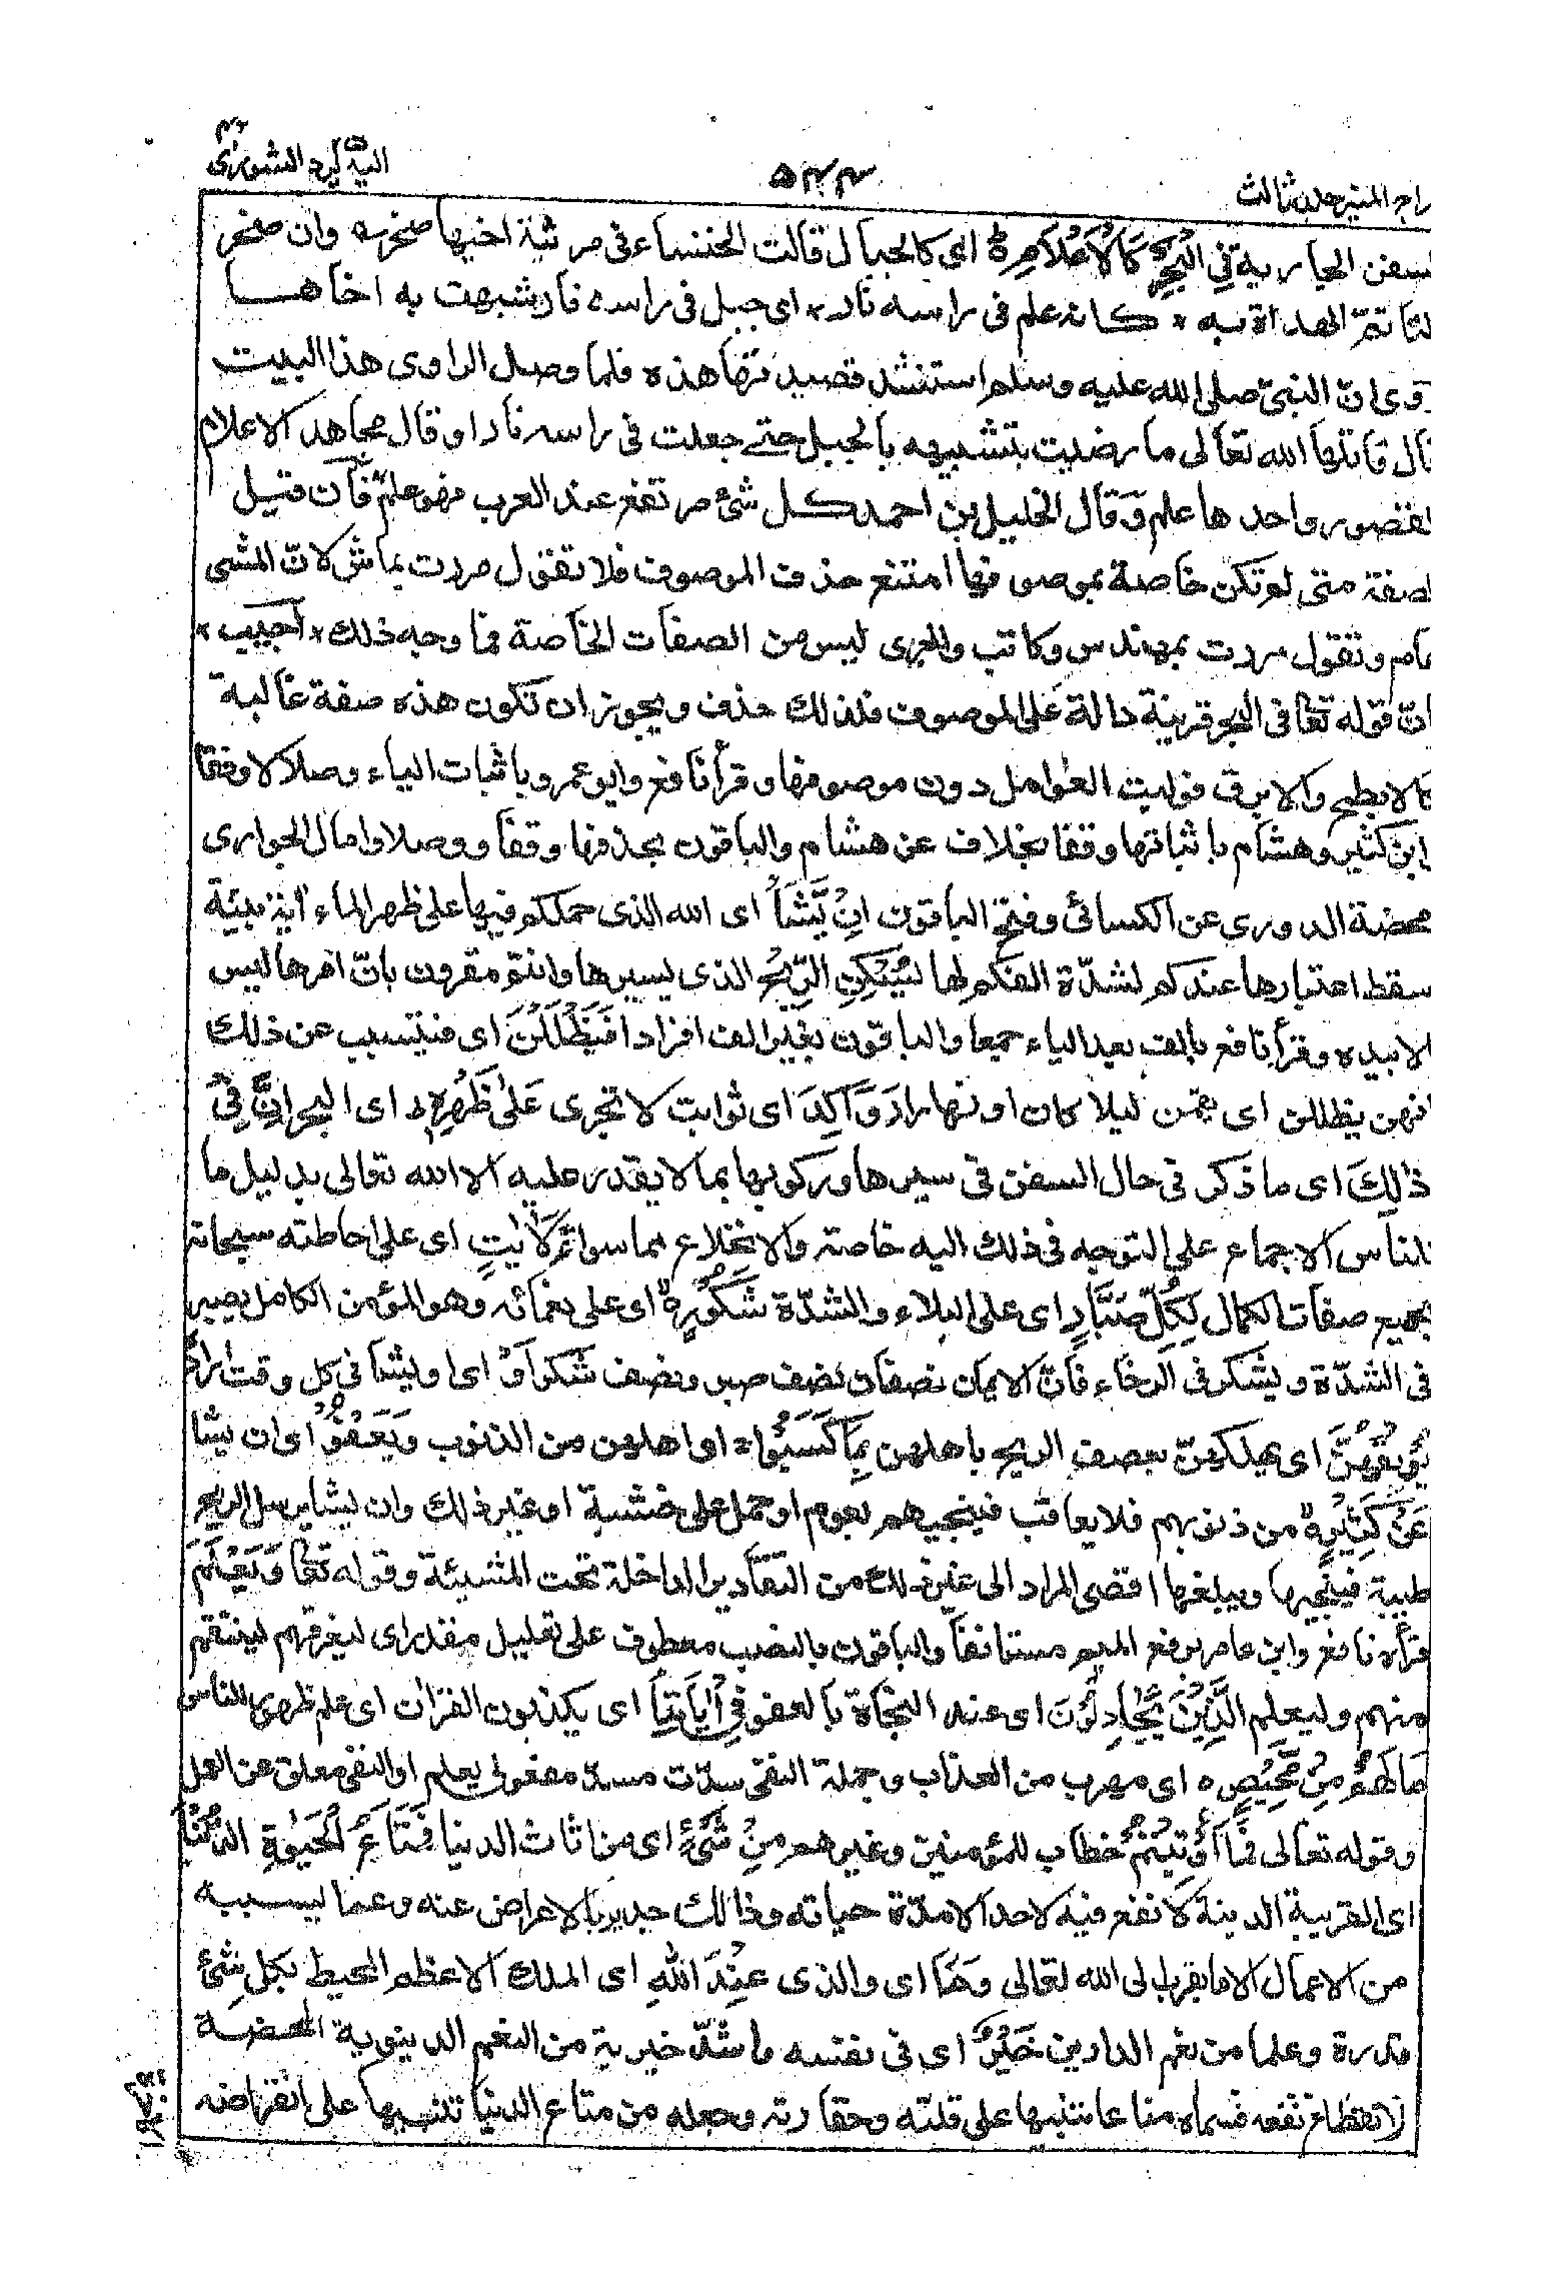 راج المنير جلد ثالث ٥٤٤ اليه يرد الشورى
السفن الجارية فِي الْبَحْرِ كَالْأَعْلَامِ اى كالجبال قالت الخنساء فى مرثية اخيها صخر ؞ وان صخر
لتاتمّ الهداة به ؞ كانه علم فى راسه نار ؞ اى جبل فى راسه نار شبهت به اخاها
روى انّ النبىّ صلى الله عليه وسلم استنشد قصيدتها هذه فلما وصل الراوى هذا البيت
قال قاتلها الله تعالى ما رضيت بتشبيهه بالجبل حتے جعلت فى راسه نارا وقال مجاهد الاعلام
القصور واحدها علم وقال الخليل بن احمد كل شئ مرتفع عند العرب فهو علم فان قيل
الصفة متى لم تكن خاصة بموصوفها امتنع حذف الموصوف فلا تقول مررت بماش لانّ المشى
عام وتقول مررت بمهندس وكاتب والجرى ليس من الصفات الخاصة فما وجه ذلك ؞ اجيب ؞
انّ قوله تعا فى البحر قرينة دالة على الموصوف فلذلك حذف ويجوز ان تكون هذه صفة غالبة
كالابطح والابرق فوليت العوامل دون موصوفها وقرأ نافع وابو عمرو باثبات الياء وصلا لا وقفا
ابن كثير وهشام باثباتها وقفا بخلاف عن هشام والباقون بحذفها وقفا ووصلا وامال الجوارى
محضة الدورى عن الكسائى وفتح الباقون اِنْ يَّشَأْ اى الله الذى حملكم فيها على ظهر الماء اية بينة
سقط اعتبارها عندكم لشدّة الفكم لها يُسْكِنِ الرِّيْحَ الذى يسيرها وانتم مقرون بانّ امرها ليس
الا بيده وقرأ نافع بالف بعد الياء جمعا والباقون بغير الف افرادا فَيَظْلَلْنَ اى فيتسبب عن ذلك
انهن يظللن اى يقمن ليلا كان او نهارا رَوَاكِدَ اى ثوابت لا تجرى عَلٰى ظَهْرِهٖ اى البحر اِنَّ فِيْ
ذٰلِكَ اى ما ذكر فى حال السفن فى سيرها وركوبها بما لا يقدر عليه الا الله تعالى بدليل ما
للناس الاجماع على التوجه فى ذلك اليه خاصة والانخلاع مما سواه لَاٰيٰتٍ اى على احاطته سبحانه
بجميع صفات الكمال لِكُلِّ صَبَّارٍ اى على البلاء والشدّة شَكُوْرٍ اى على نعمائه وهو المؤمن الكامل يصبر
فى الشدّة ويشكر فى الرخاء فانّ الايمان نصفان نصف صبر ونصف شكر اَوْ اى او يشا فى كل وقت اراد
يُوْبِقْهُنَّ اى يهلكهنّ بعصف الريح باهلهن بِمَا كَسَبُوْا اى اهلهن من الذنوب وَيَعْفُ اى ان يشا
عَنْ كَثِيْرٍ من ذنوبهم فلا يعاقب فينجيهم بعوم او حمل على خشبة او غير ذلك وان يشا يرسل الريح
طيبة فينجيها ويبلغها اقصى المراد الى غير ذلك من التقادير الداخلة تحت المشيئة وقوله تعا وَيَعْلَمَ
قرأه نافع وابن عامر برفع الميم مستانفا والباقون بالنصب معطوف على تعليل مقدر اى ليغرقهم لينتقم
منهم وليعلم الَّذِيْنَ يُجَادِلُوْنَ اى عند النجاة بالعفو فِيْ اٰيَاتِنَا اى يكذبون القران اى علم ظهور للناس
مَا لَهُمْ مِنْ مَّحِيْصٍ ه اى مهرب من العذاب وجملة النفى سدّت مسدّ مفعولى يعلم او النفى معلق عن العمل
وقوله تعالى فَمَا اُوْتِيْتُمْ خطاب للمؤمنين وغيرهم مِنْ شَىْءٍ اى من اثاث الدنيا فَمَتَاعُ الْحَيٰوةِ الدُّنْيَا
اى القريبة الدنية لا نفع فيه لاحد الا مدّة حياته وذالك جدير بالاعراض عنه وعما يسببه
من الاعمال الا ما يقرب الى الله تعالى وَمَا اى والذى عِنْدَ اللهِ اى الملك الاعظم المحيط بكل شئ
قدرة وعلما من نعم الدارين خَيْرٌ اى فى نفسه واشدّ خيرية من النعم الدينوية المحضة
لانقطاع نفعه فسماه متاعا تنبيها على قلته وحقارته وجعله من متاع الدنيا تنبيها على انقراضه